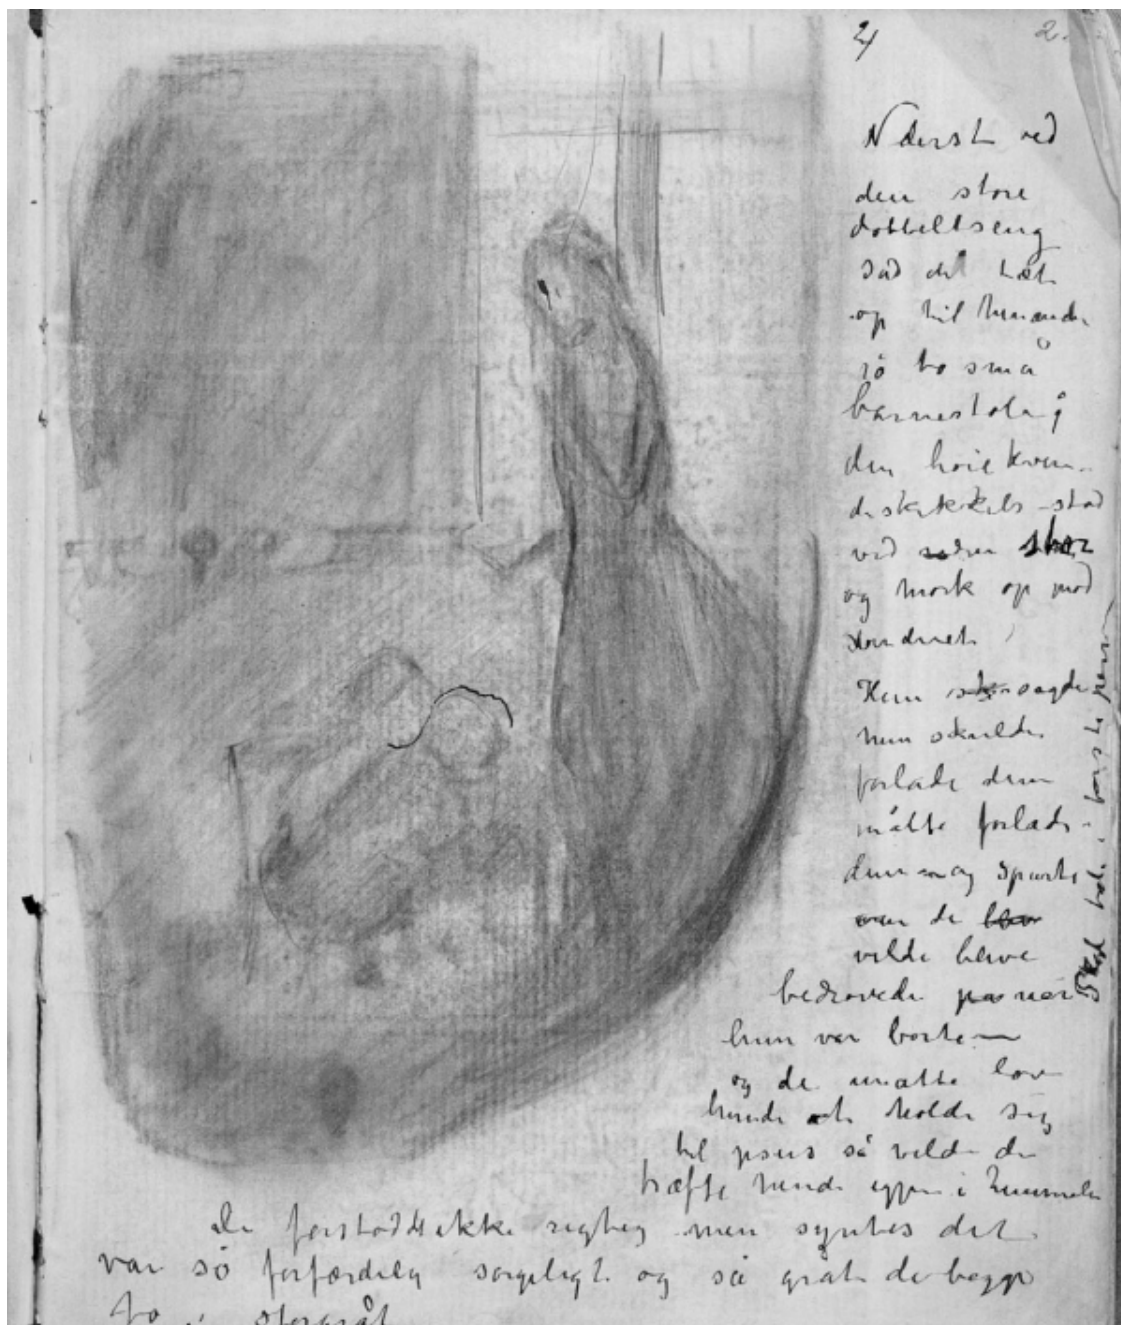 4
2.
Nderst ved
den store
dobbeltseng
sad det tæt
op til hinanden
på to små
barnestole;
den høie kvin-
deskikkels stod
ved siden
og mørk op mod
vinduet
Hun sagde
hun skulde
forlade dem
måtte forlade
dem og spurte
om de
vilde blive
bedrøvede når
hun var borte —
og de måtte love
hende at holde sig
til Jesus så vilde de
træffe hende igjen i himmelen
De forstod ikke rigtig men syntes det
var så forfærdelig sørgeligt og så gråt de begge
to i storgråt